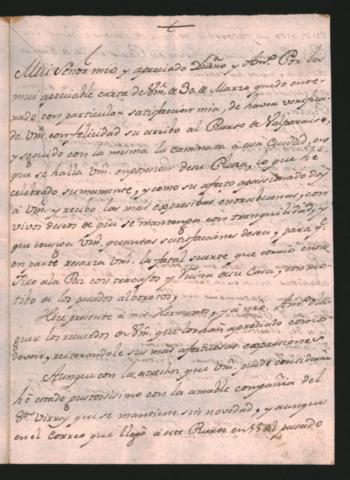 Mui Señor mio, y apreciado Dueño y Am.º Por la
mui apreciable carta de Vm. de 30 de Marzo quedo ente-
rado con particular satisfaccion mia, de haver verifica-
do Vm. con felicidad su arribo al Puerto de Valparaiso,
y seguido con la misma la caminata a esa Ciudad, en
que se halla Vm. en posesion de su Plaza, lo que he
celebrado sumamente, y como su afecto apasionado doy
à Vm. y recibo las mas expresibas enorabuenas, con
vivos deseos de que se mantenga con tranquilidad, y
que consiga Vm. quantas satisfacciones desea, para que
en parte resarza Vm. la fatal suerte que corrió en
à la Paz con travajos y ruina de su Casa, con mo-
tibo de los pasados alborotos,
Hice presente à mis Hermanos, y à nro.
los recuerdos de Vm. que los han apreciado como
deven, reiterandole sus mas afectuosas expresiones
Aunque con la que Vm. puede considerar
hè estado gustosissimo con la amable compañia del
Sor. Virrey que se mantiene sin novedad, y aunque
en el Correo que llegó à este Puerto en 15 del pasado